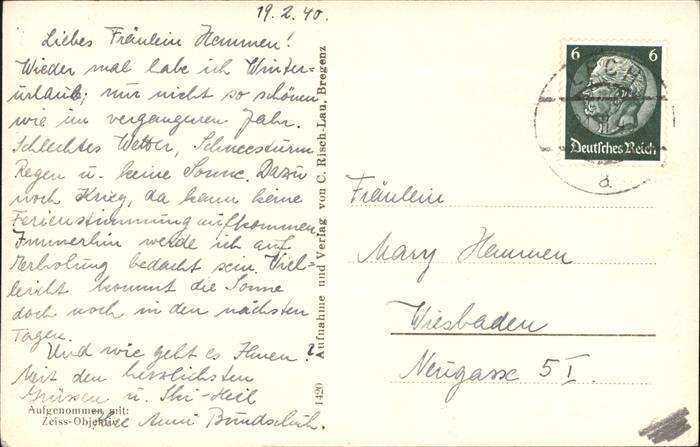 19.2.40.
Liebes Fräulein Hemmen!
Wieder mal habe ich Winter-
urlaub; nur nicht so schönen
wie im vergangenen Jahr.
Schlechtes Wetter, Schneesturm
Regen u. keine Sonne. Dazu
noch Krieg, da kann keine
Ferienstimmung aufkommen.
Immerhin werde ich auf
Erholung bedacht sein. Viel-
leicht kommt die Sonne
doch noch in den nächsten
Tagen.
Und wie geht es Ihnen?
Mit den herzlichsten
Grüssen u. Ski-Heil
Ihre Anni Bundschuh.
Aufgenommen mit:
Zeiss-Objektiv
1420 Aufnahme und Verlag von C. Risch-Lau, Bregenz
6 6
Deutsches Reich
a
Fräulein
Mary Hemmen
Wiesbaden
Neugasse 5 I.